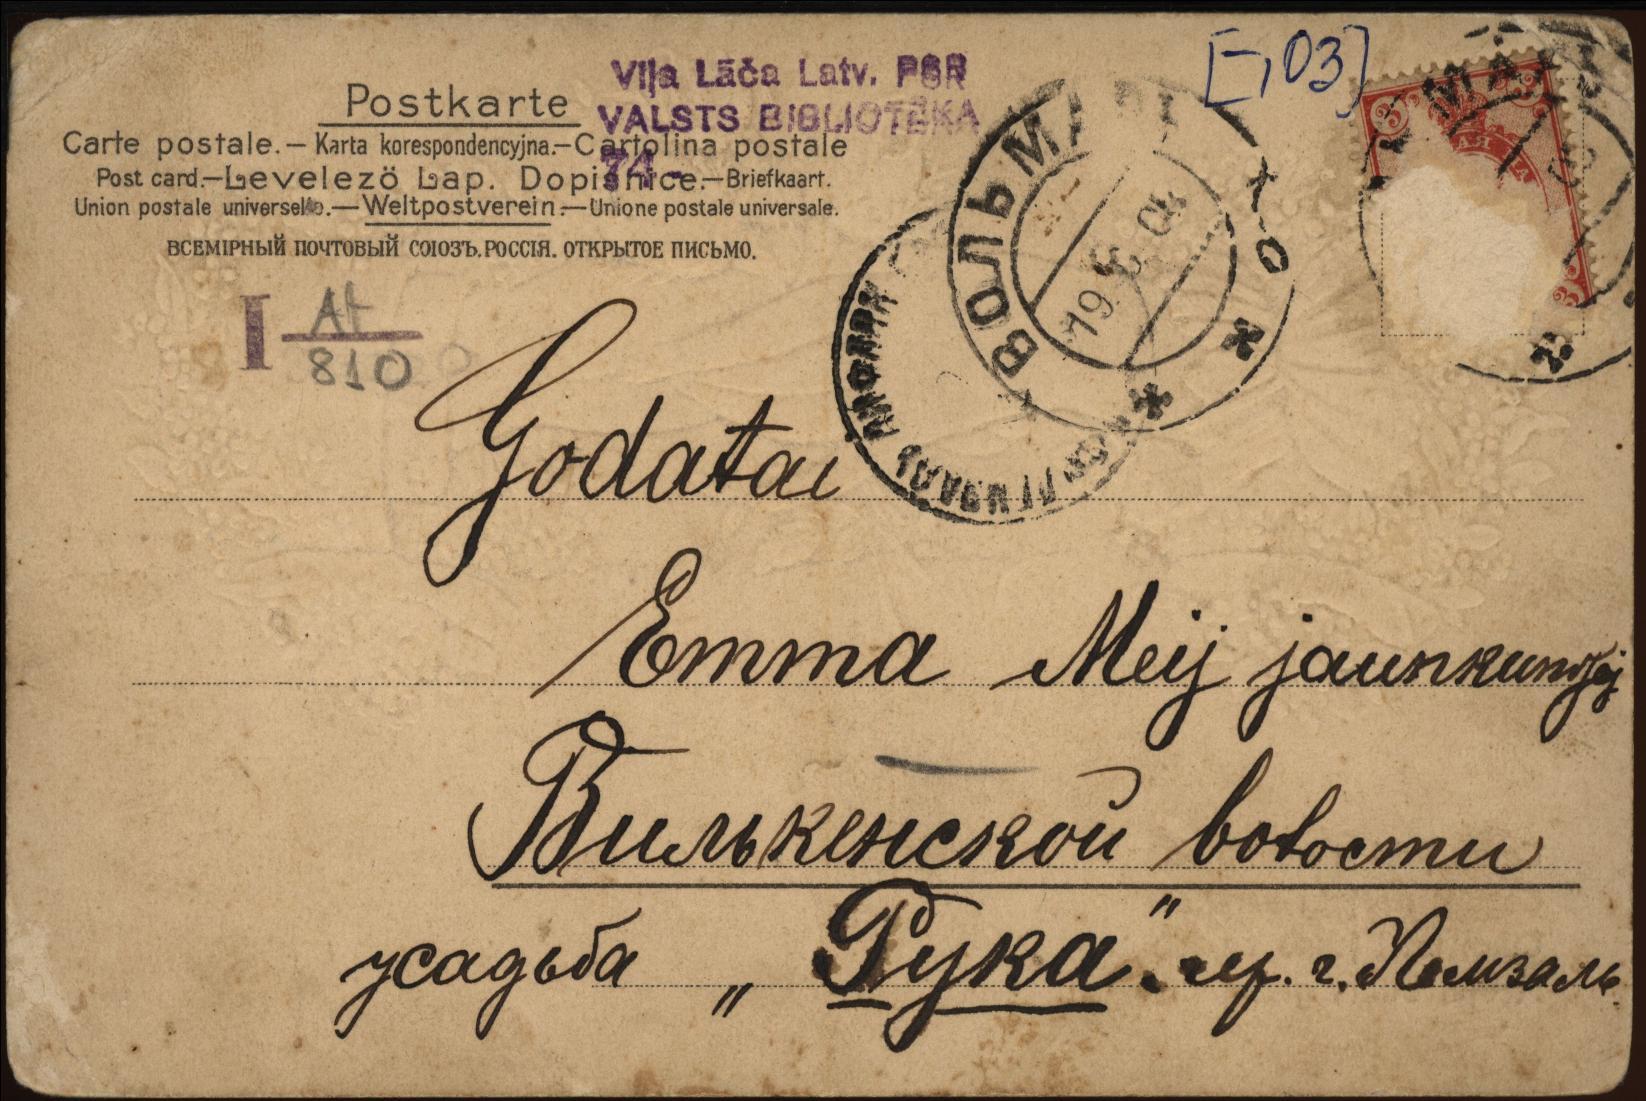 Postkarte
Carte postale.— Karta korespondencyjna.—Cartolina postale
Post card.—Levelezö Lap. Dopisnice.—Briefkaart.
Union postale universelle.—Weltpostverein.—Unione postale universale.
ВСЕМІРНЫЙ ПОЧТОВЫЙ СОЮЗЪ. РОССІЯ. ОТКРЫТОЕ ПИСЬМО.
Viļa Lāča Latv. PSR
VALSTS BIBLIOTĒKA
74-
[-,03]
I At
810
ВОЛЬМАР
19 5 04
Godatai
Emma Meij jaunkundzej
Вилькенской волости
усадьба „Рука". чр. г. Лемзаль